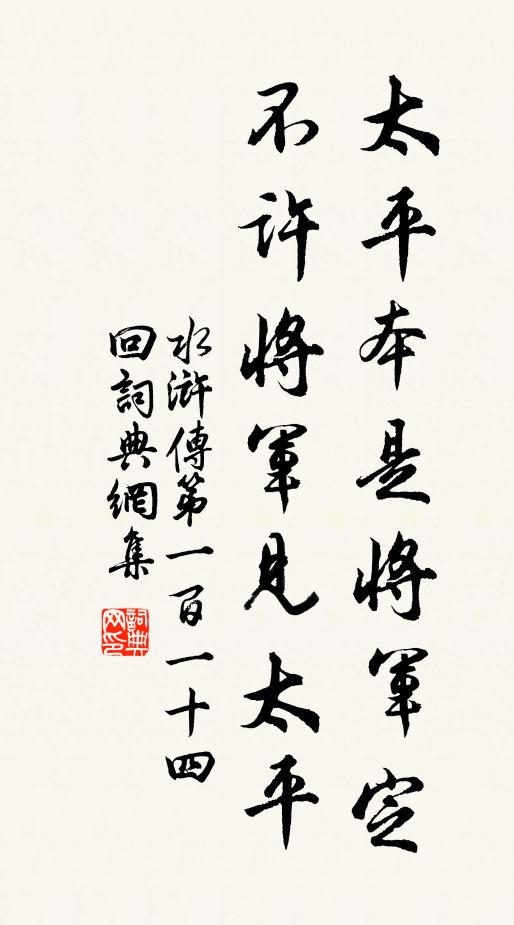 太平本是將軍定
不許將軍見太平
水滸傳第一百一十四
回詞典網集
詞典
网印